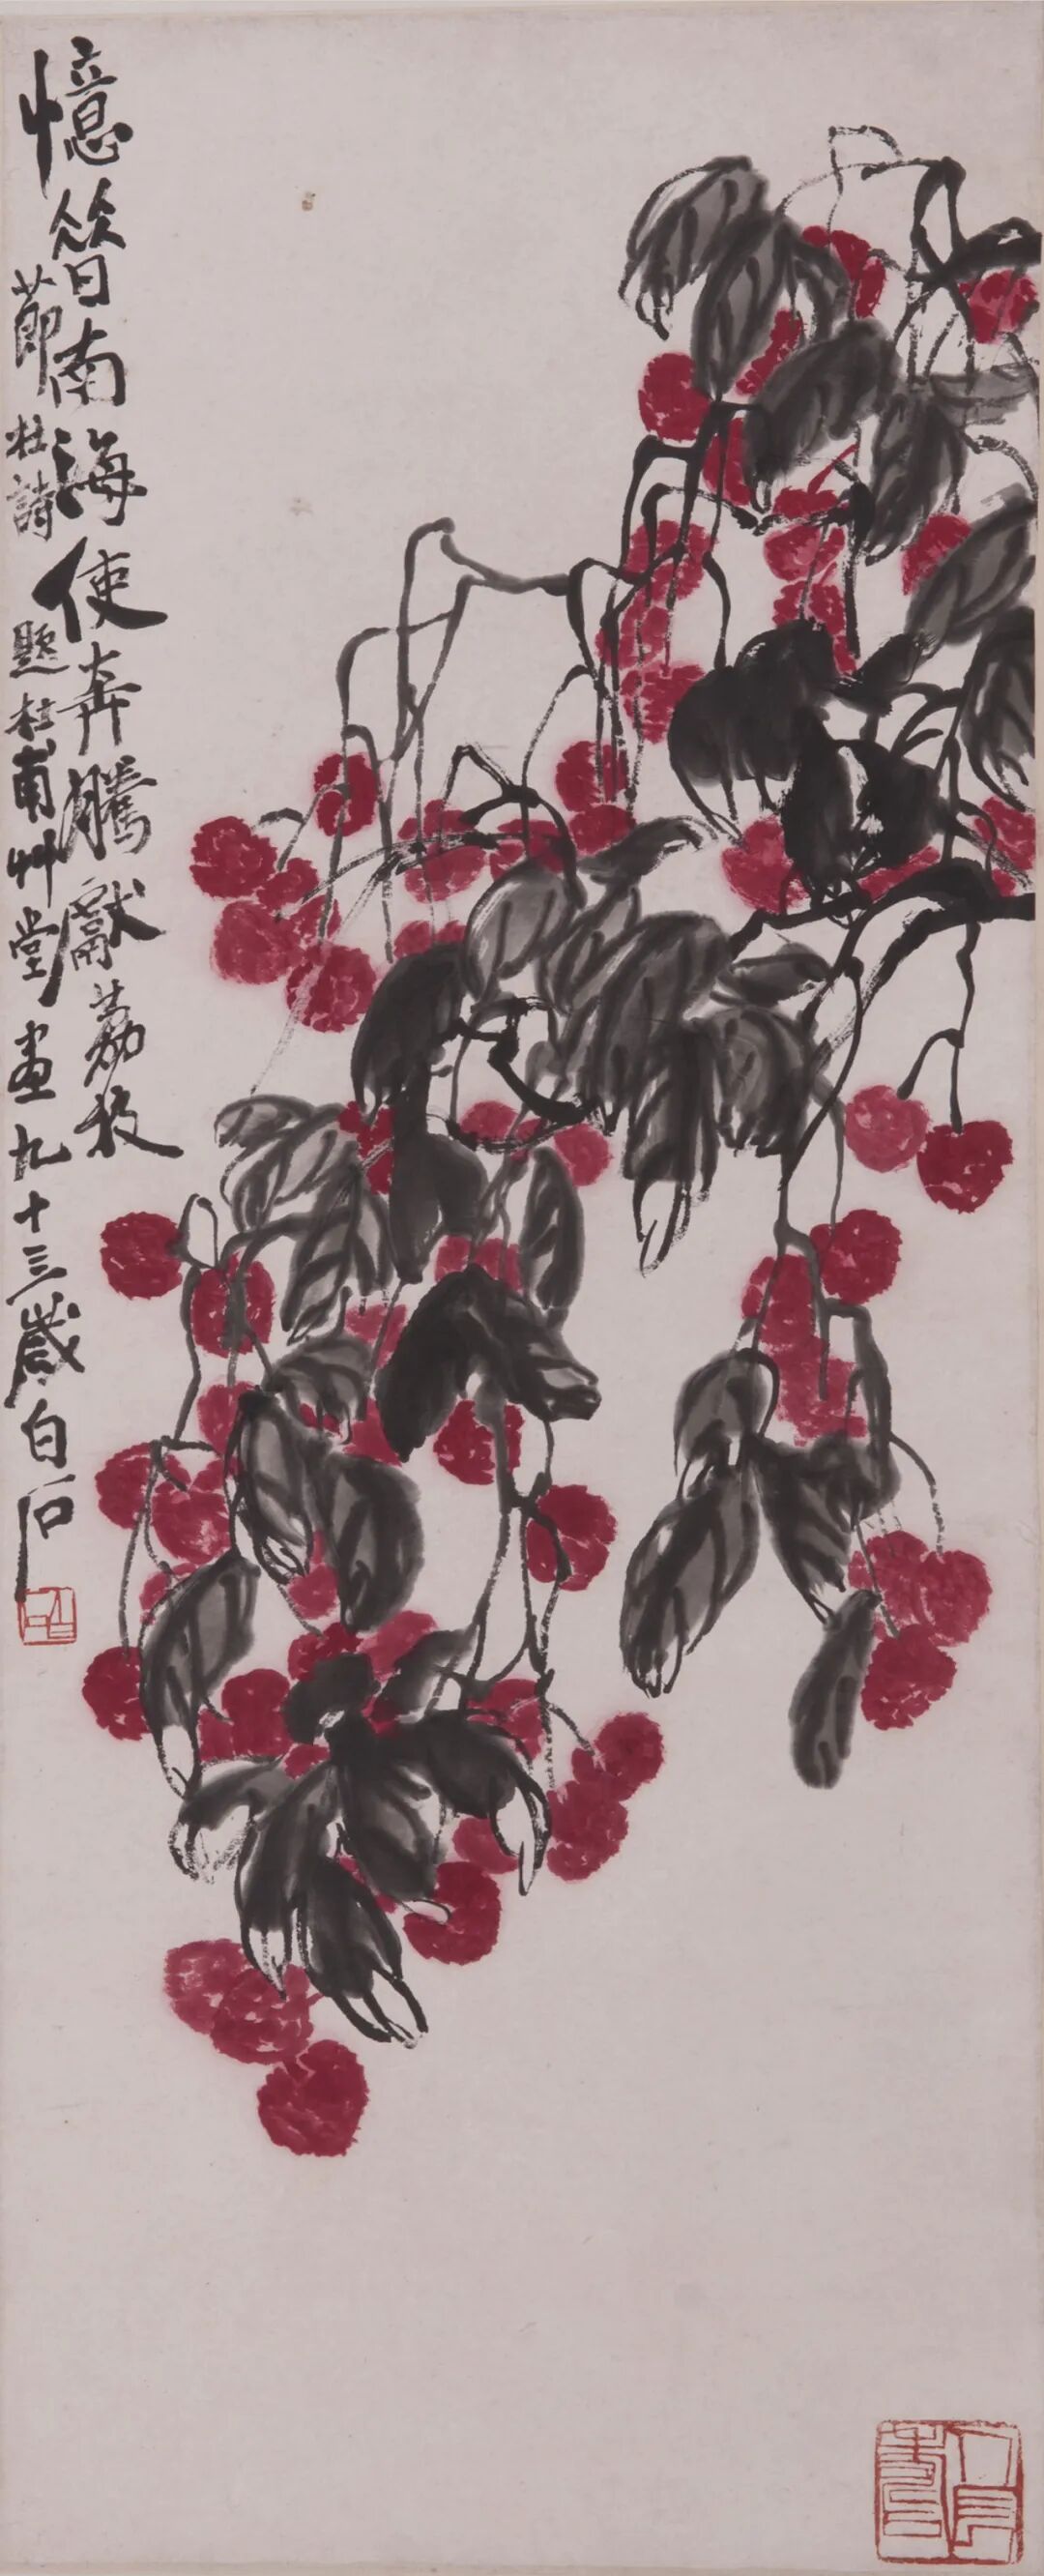 憶昔南海使奔騰獻荔枝
節杜詩題杜甫艸堂畫九十三歲白石
白石